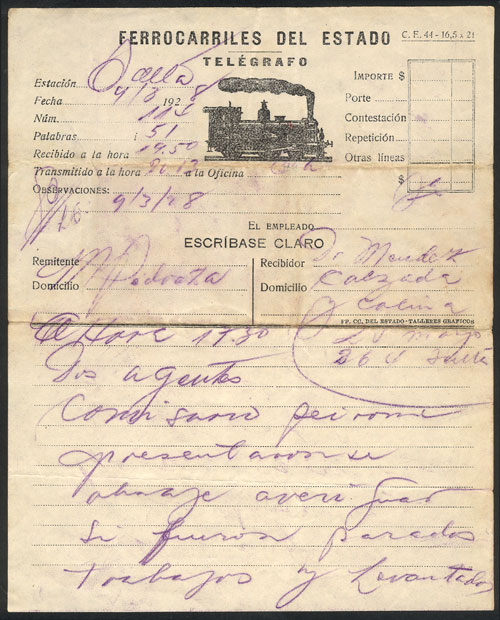 FERROCARRILES DEL ESTADO
C. F. 44 - 16,5 x 21
TELÉGRAFO
Estación Salta
Fecha 9/3 1928
Núm.
Palabras 51
Recibido a la hora 19.50
Transmitido a la hora a la Oficina
OBSERVACIONES:
9/3/28
IMPORTE $
Porte
Contestación
Repetición
Otras líneas
$
EL EMPLEADO
ESCRÍBASE CLARO
Remitente
Domicilio
Recibidor Dr
Domicilio Calzada
FF. CC. DEL ESTADO - TALLERES GRAFICOS
20 Mayo
264 Salta
Hora 17.30
Dos agentes
Comisario
presentaronse
averiguar
si fueron parados
trabajos y levantados